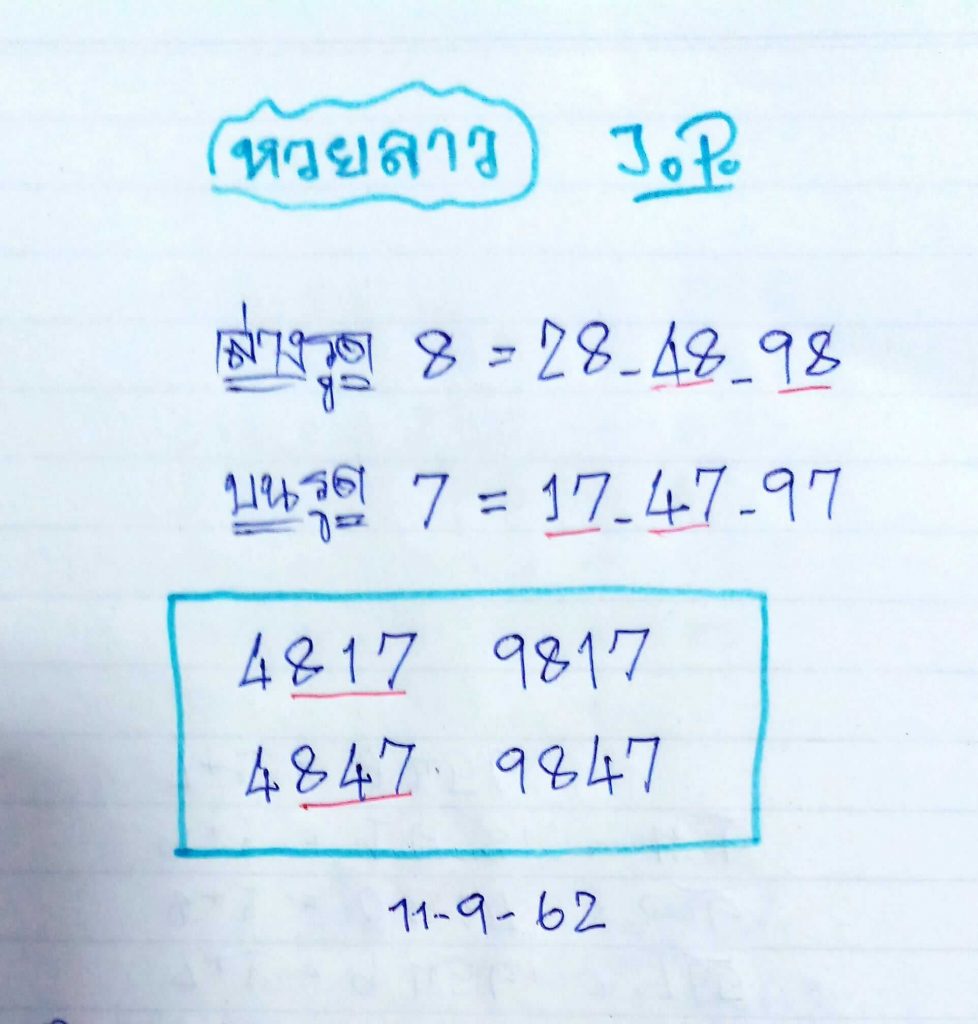 หวยลาว J.P.
ล่างรูด 8 = 28-48-98
บนรูด 7 = 17-47-97
4817 9817
4847 9847
11-9-62